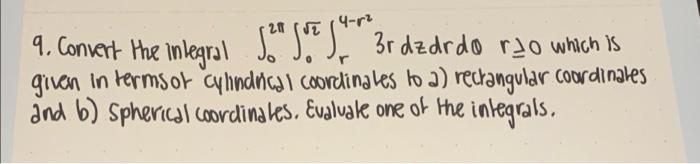 9. Convert the integral ∫₀^{2π} ∫₀^{√2} ∫ᵣ^{4-r²} 3r dzdrdθ r≥0 which is
given in terms of cylindrical coordinates to a) rectangular coordinates
and b) spherical coordinates. Evaluate one of the integrals.